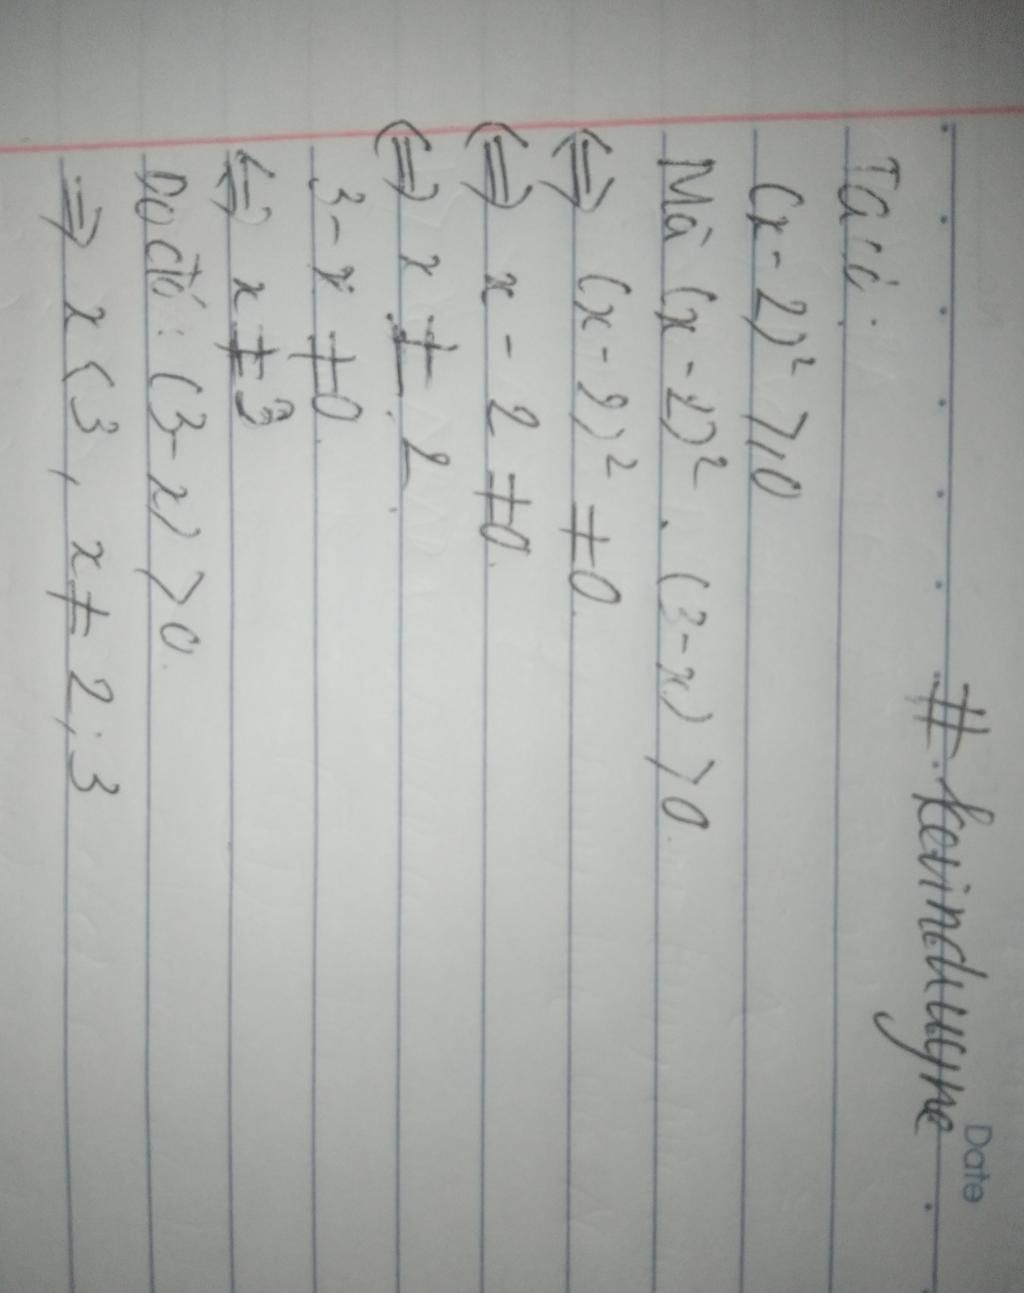 Date
#.kevinduyne
Ta có:
(x-2)² ⩾ 0
Mà (x-2)². (3-x) > 0.
⇔ (x-2)² ≠ 0.
⇔ x-2 ≠ 0.
⇔ x ≠ 2.
3-x ≠ 0.
⇔ x ≠ 3
Do đó: (3-x) > 0.
⇒ x < 3, x ≠ 2; 3